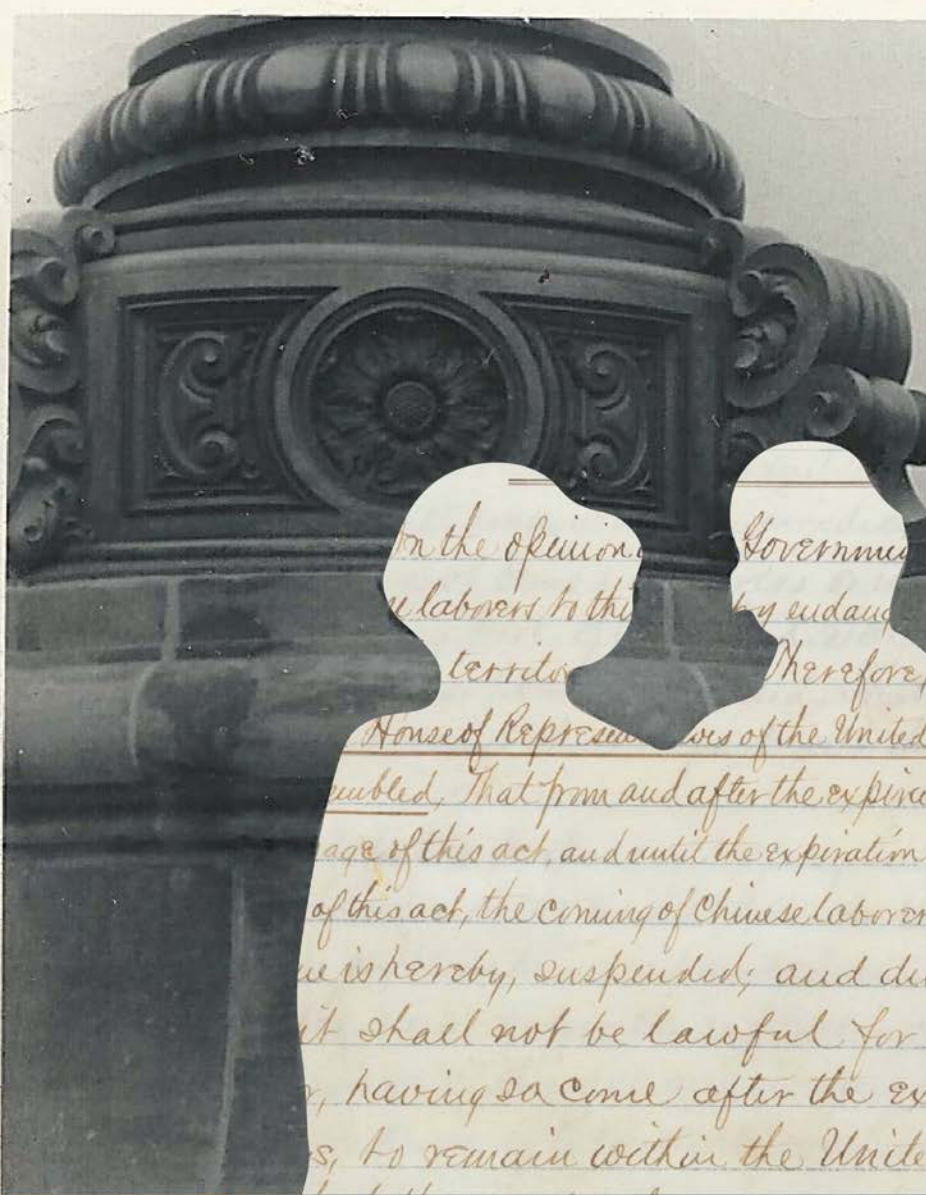 on the opinion Governmen
laborers to thi by endang
territo Therefore,
House of Represen ives of the United
embled, That from and after the expira
age of this act, and until the expiration
of this act, the coming of Chinese laborer
is hereby, suspended; and du
it shall not be lawful for
r, having so come after the ex
s, to remain within the Unite